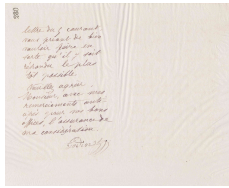 lettre du 5 courant,
vous priant de bien
vouloir faire en
sorte qu'il y soit
répondu le plus
tôt possible.
Veuillez agréer,
Monsieur, avec mes
remerciements anti-
cipés pour vos bons
offices, l'assurance de
ma considération.